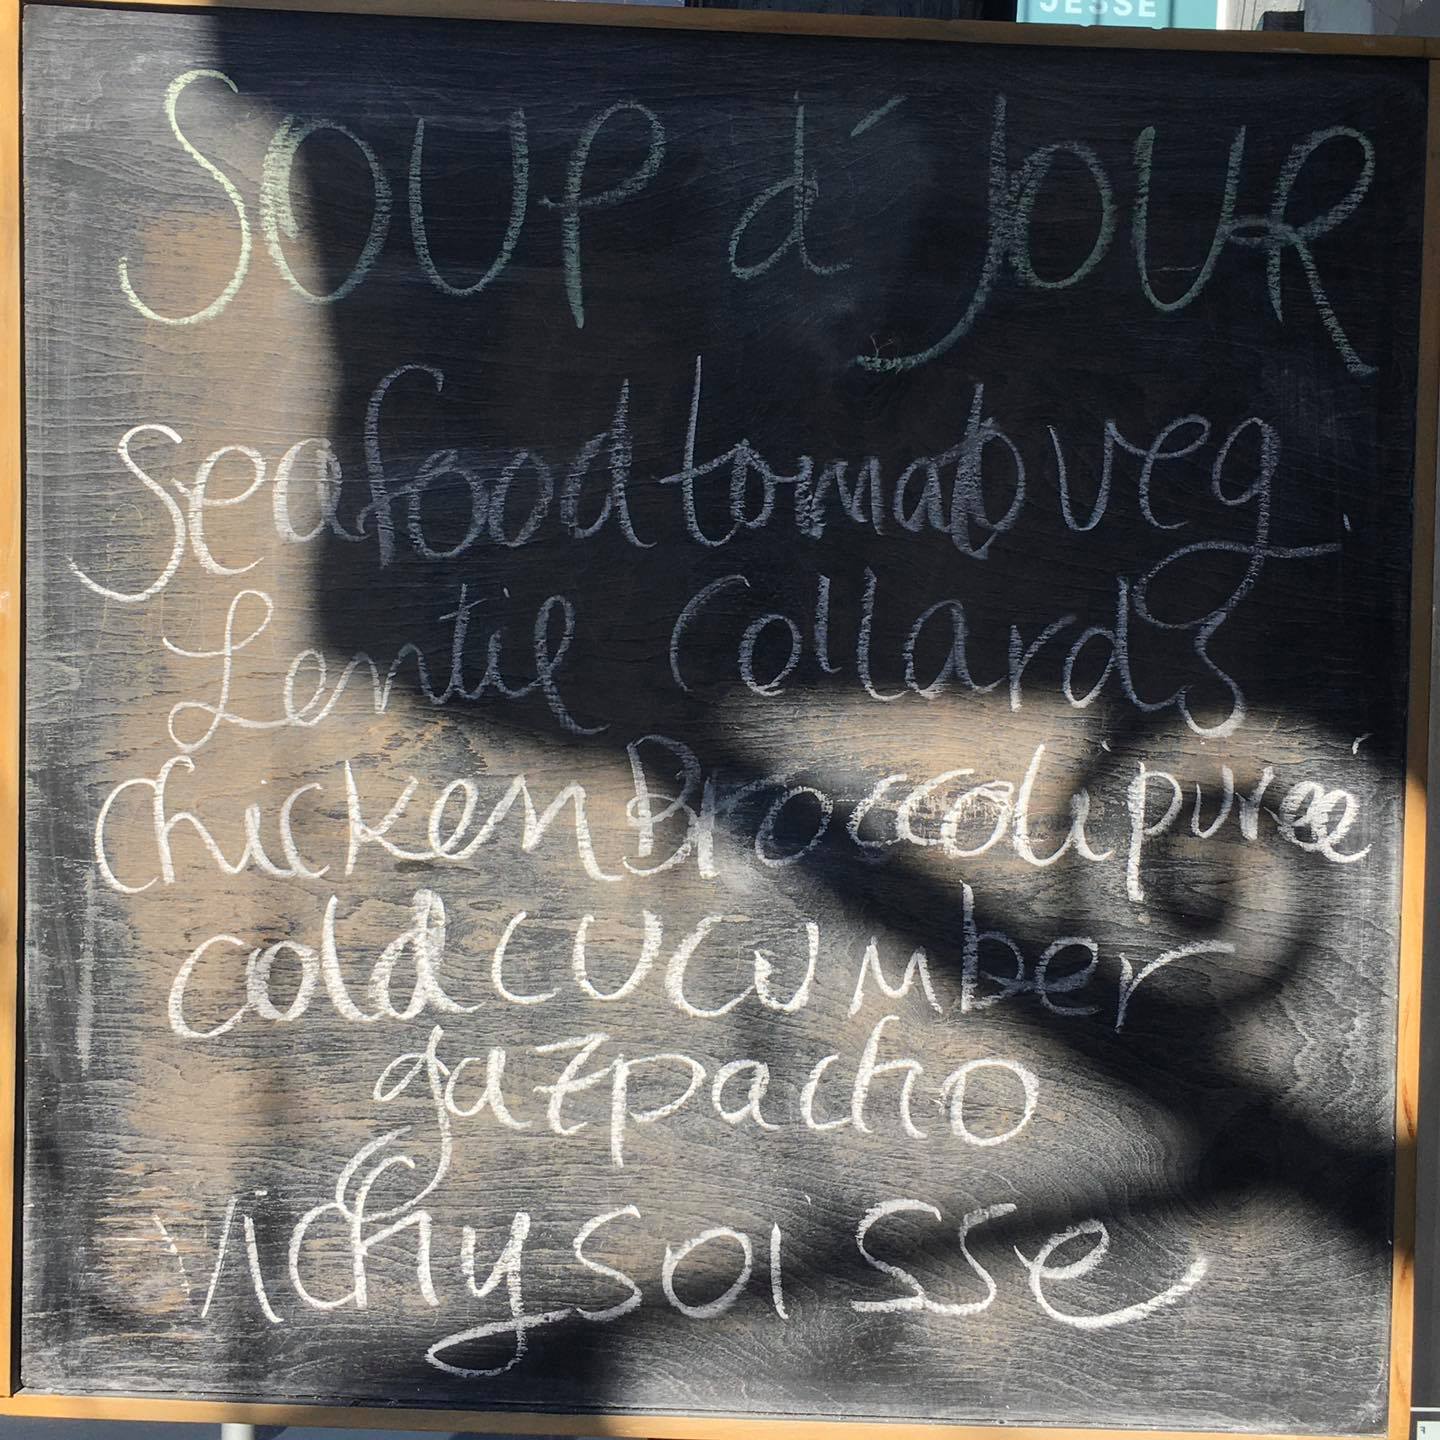 JESSE
SOUP d' JOUR
Seafood tomato veg.
Lentil Collards
Chicken Broccoli pureé
cold cucumber
gazpacho
Vichysoisse